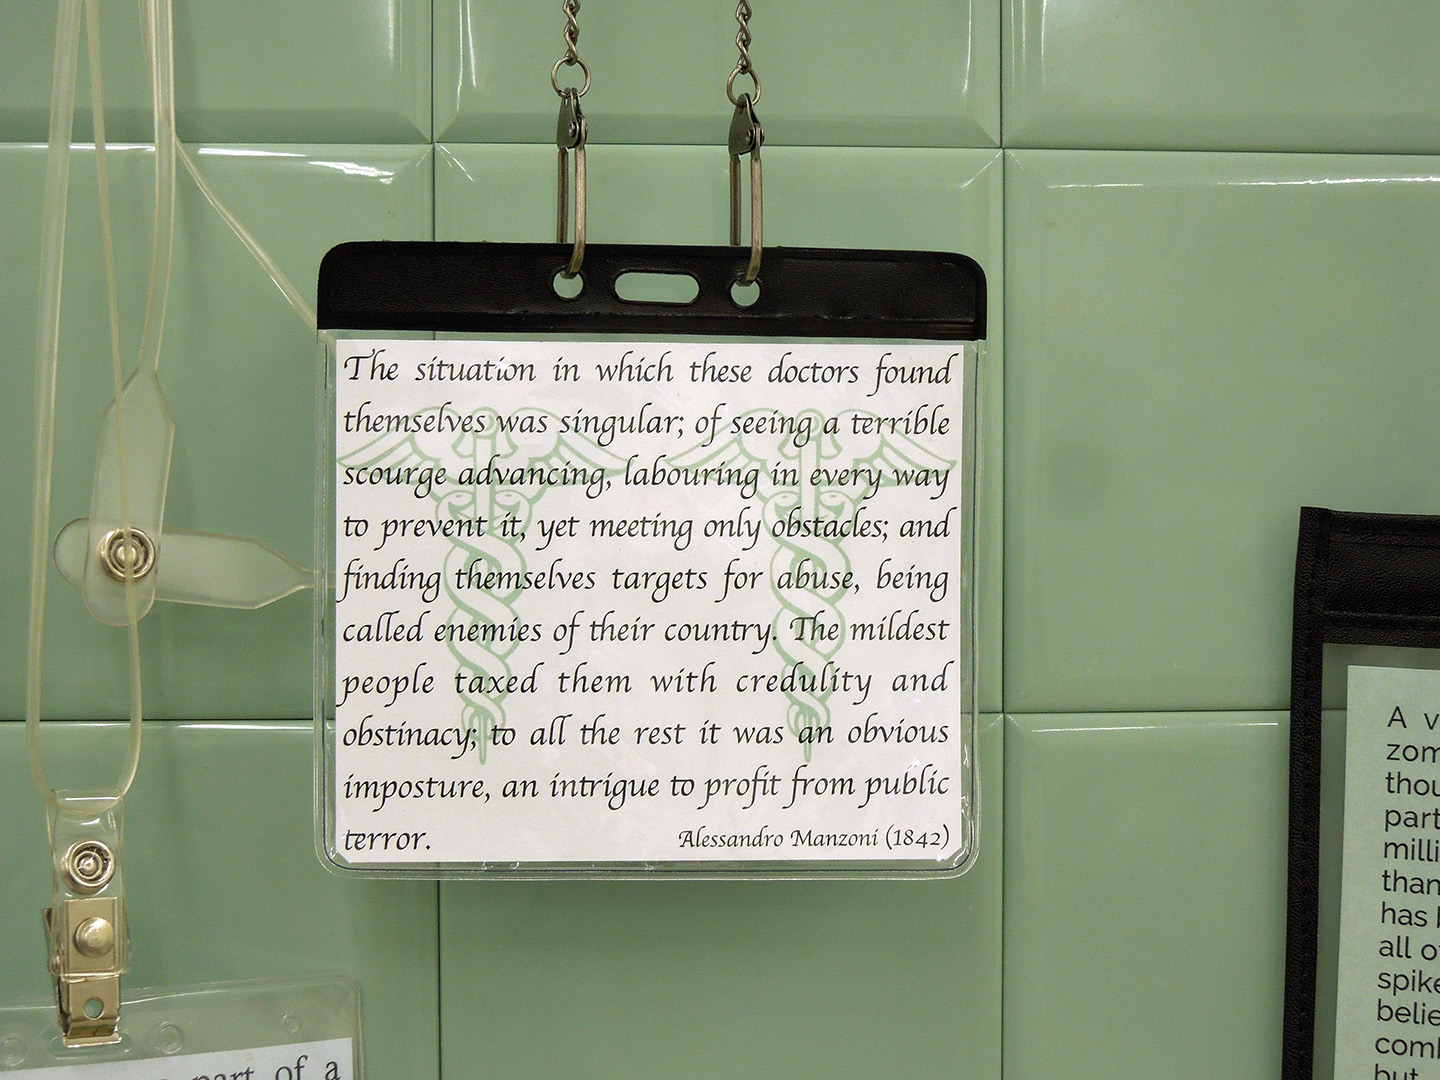 The situation in which these doctors found
themselves was singular; of seeing a terrible
scourge advancing, labouring in every way
to prevent it, yet meeting only obstacles; and
finding themselves targets for abuse, being
called enemies of their country. The mildest
people taxed them with credulity and
obstinacy; to all the rest it was an obvious
imposture, an intrigue to profit from public
terror.
Alessandro Manzoni (1842)
part of a
A